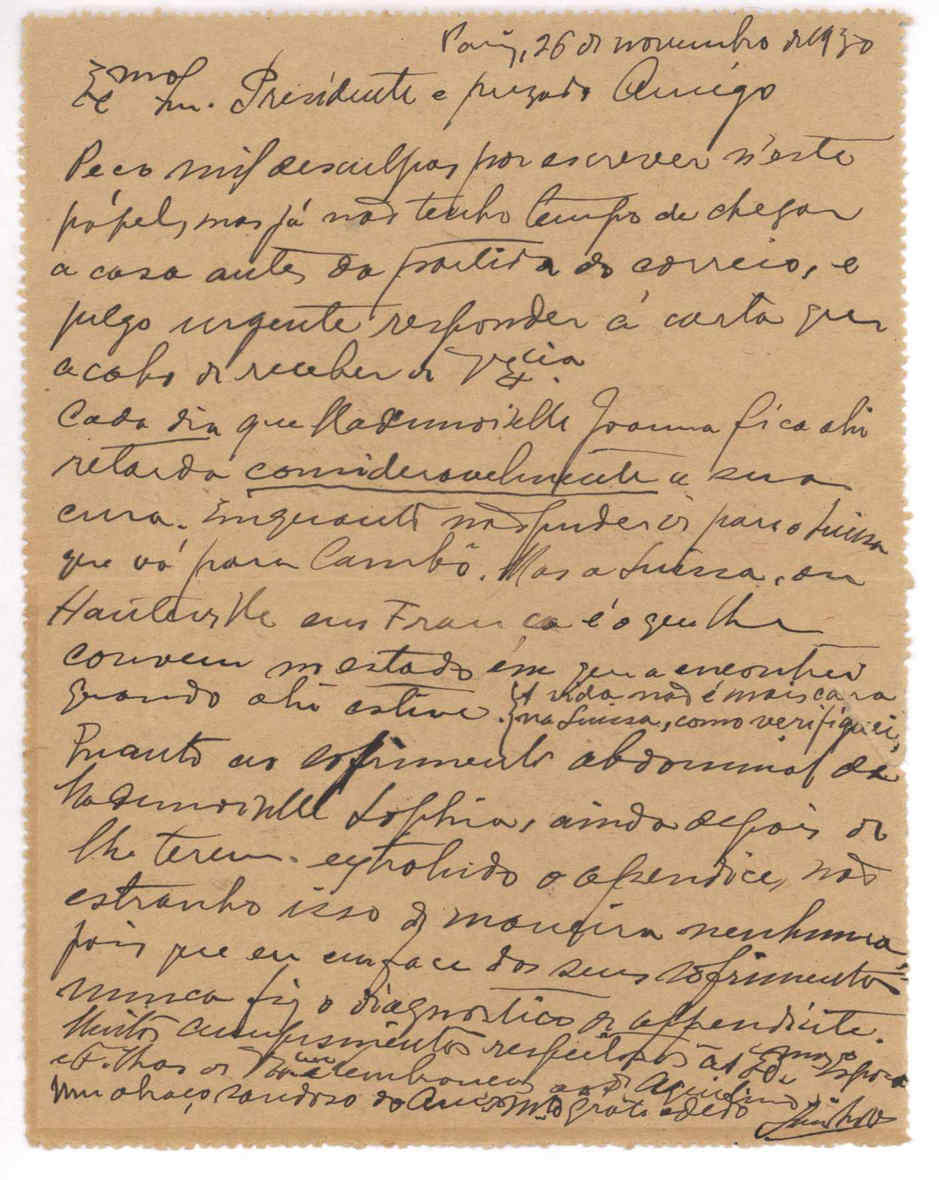 Paris, 26 de novembro de 1930
Exmo Snr. Presidente e prezado Amigo
Peço mil desculpas por escrever n'este
papel, mas já não tenho tempo de chegar
a casa antes da partida do correio, e
julgo urgente responder á carta que
acabo de receber de V. Excia
Cada dia que Mademoiselle Joanna fica ahi
retarda consideravelmente a sua
cura. Enquanto não puder ir para a Suissa
que vá para Cambô. Mas a Suissa, ou
Hauteville em França é o que lhe
convem no estado em que a encontrei
quando ahi estive. A vida não é mais cara
na Suissa, como verifiquei,
Quanto ao sofrimento abdominal de
Mademoiselle Sophia, ainda depois de
lhe terem extrahido o apendice, não
estranho isso de maneira nenhuma
pois que eu em face dos seus sofrimentos
nunca fiz o diagnostico de appendicite.
Muitos cumprimentos respeitosos ás Exmas Esposa
e Filhas de V. Excia lembranças ao Aquilino
Um abraço saudoso do Amigo mto grato e dedo